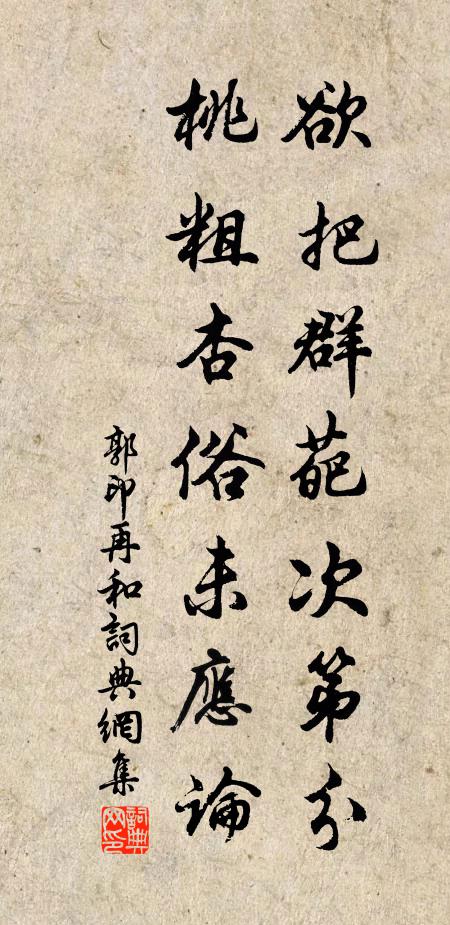 欲把群葩次第分
桃粗杏俗未應論
郭印再和詞典網集
詞典網印